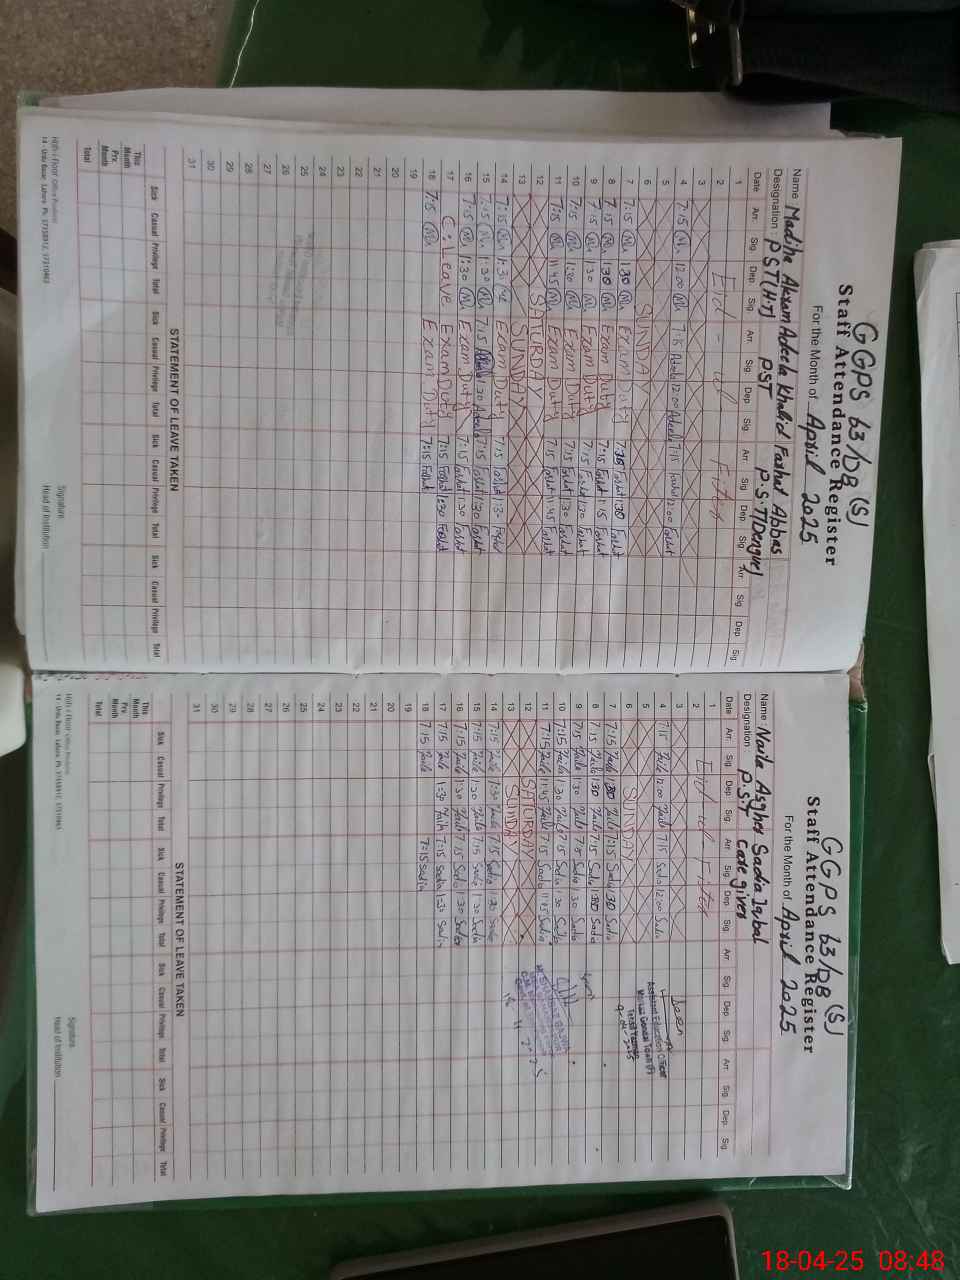 GGPS 63/DB (S)
Staff Attendance Register
For the Month of April 2025
Name Madiha Akram Adeela Khalid Farhat Abbas
Designation : PST(H.T) PST P.S.T(Dengue)
Date Arr. Sig. Dep. Sig. Arr. Sig. Dep. Sig. Arr. Sig. Dep. Sig. Arr. Sig. Dep. Sig.
1
2 Eid - ul Fiter
3
4 7:15 12:00 7:15 Adeela 12:00 Adeela 7:15 Farhat 12:00 Farhat
5
6 SUNDAY
7 7:15 1:30 Exam Duty 7:15 Farhat 1:30 Farhat
8 7:15 1:30 Exam Duty 7:15 Farhat 1:15 Farhat
9 7:15 1:30 Exam Duty 7:15 Farhat 1:30 Farhat
10 7:15 1:30 Exam Duty 7:15 Farhat 1:30 Farhat
11 7:15 11:45 Exam Duty 7:15 Farhat 11:45 Farhat
12 SATURDAY
13 SUNDAY
14 7:15 1:30 Exam Duty 7:15 Farhat 1:30 Farhat
15 7:15 1:30 7:15 Adeela 1:30 Adeela 7:15 Farhat 1:30 Farhat
16 7:15 1:30 Exam Duty 7:15 Farhat 1:30 Farhat
17 C: Leave Exam Duty 7:15 Farhat 1:30 Farhat
18 7:15 Exam Duty 7:15 Farhat
19
20
21
22
23
24
25
26
27
28
29
30
31
STATEMENT OF LEAVE TAKEN
Sick Casual Privilege Total Sick Casual Privilege Total Sick Casual Privilege Total Sick Casual Privilege Total
This Month
Prv. Month
Total
Signature
Head of Institution
14 - Urdu Bazar, Lahore. Ph:
GGPS 63/DB (S)
Staff Attendance Register
For the Month of April 2025
Name : Naila Asgher Sadia Iqbal
Designation : P.S.T Care giver
Date Arr. Sig. Dep. Sig. Arr. Sig. Dep. Sig. Arr. Sig. Dep. Sig. Arr. Sig. Dep. Sig.
1
2 Eid ul - Fiter
3
4 7:15 Naila 12:00 Naila 7:15 Sadia 12:00 Sadia
5
6 SUNDAY
7 7:15 Naila 1:30 Naila 7:15 Sadia 1:30 Sadia
8 7:15 Naila 1:30 Naila 7:15 Sadia 1:30 Sadia
9 7:15 Naila 1:30 Naila 7:15 Sadia 1:30 Sadia
10 7:15 Naila 1:30 Naila 7:15 Sadia 1:30 Sadia
11 7:15 Naila 11:45 Naila 7:15 Sadia 11:45 Sadia
12 SATURDAY
13 SUNDAY
14 7:15 Naila 1:30 Naila 7:15 Sadia 1:30 Sadia
15 7:15 Naila 1:30 Naila 7:15 Sadia 1:30 Sadia
16 7:15 Naila 1:30 Naila 7:15 Sadia 1:30 Sadia
17 7:15 Naila 1:30 Naila 7:15 Sadia 1:30 Sadia
18 7:15 Naila 7:15 Sadia
19
20
21
22
23
24
25
26
27
28
29
30
31
Assistant Education Officer
STATEMENT OF LEAVE TAKEN
Sick Casual Privilege Total Sick Casual Privilege Total Sick Casual Privilege Total Sick Casual Privilege Total
This Month
Prv. Month
Total
Signature
Head of Institution
14 - Urdu Bazar, Lahore. Ph:
18-04-25 08:48